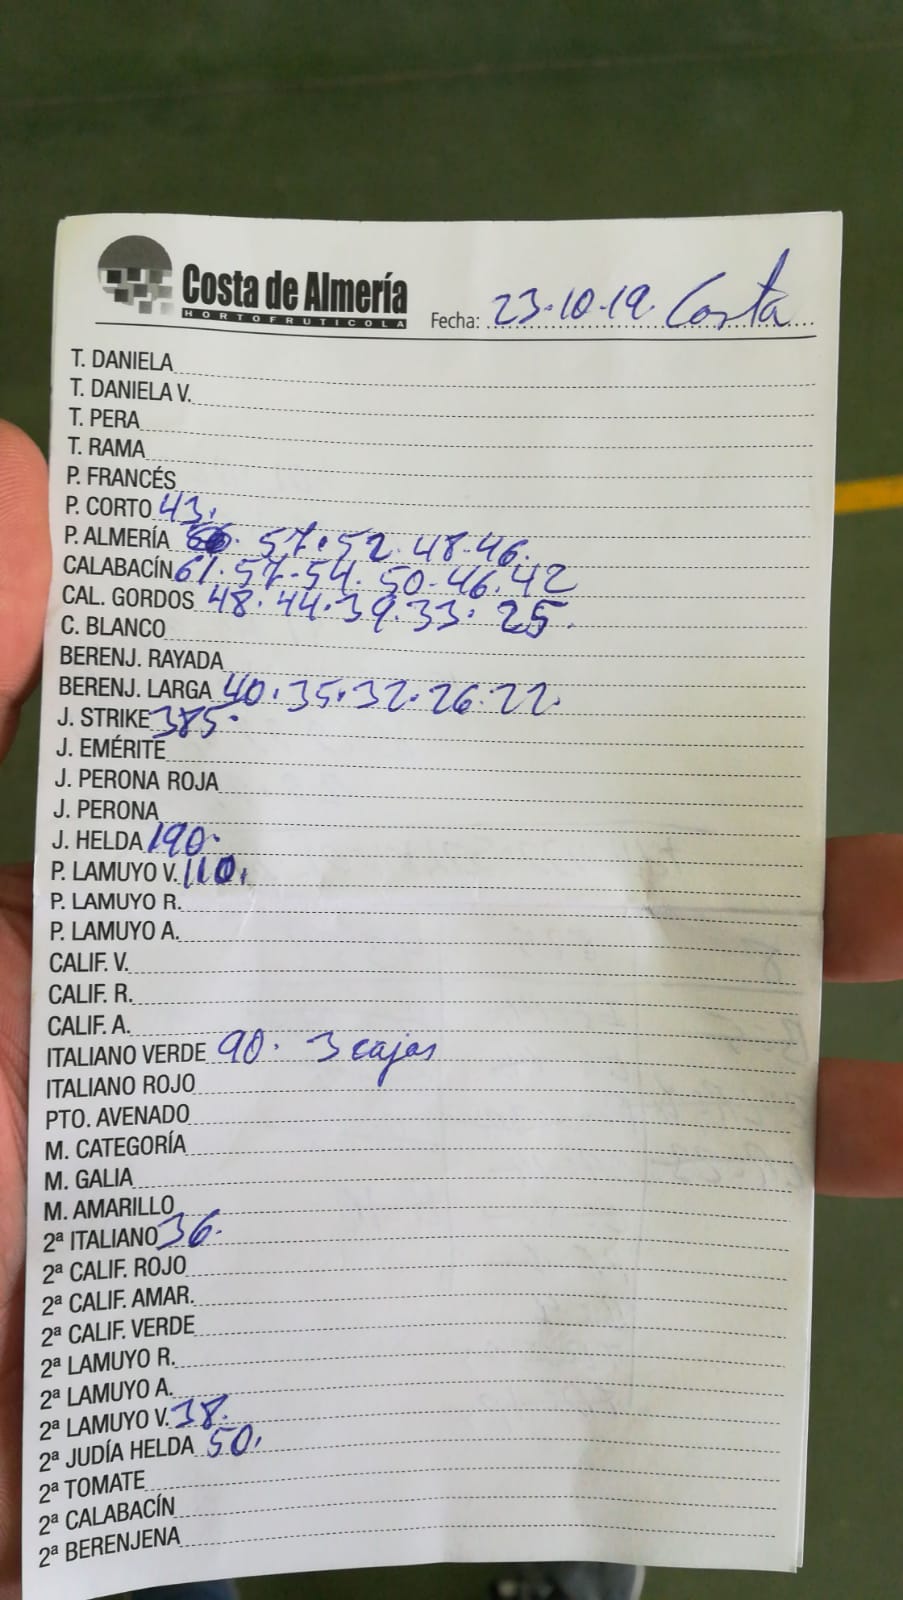 Costa de Almería
HORTOFRUTICOLA
Fecha: 23·10·19· Costa
T. DANIELA
T. DANIELA V.
T. PERA
T. RAMA
P. FRANCÉS
P. CORTO 43.
P. ALMERÍA 57·52·48·46.
CALABACÍN 61·57·54·50·46·42
CAL. GORDOS 48·44·39·33·25.
C. BLANCO
BERENJ. RAYADA
BERENJ. LARGA 40·35·32·26·22.
J. STRIKE 385·
J. EMÉRITE
J. PERONA ROJA
J. PERONA
J. HELDA 190·
P. LAMUYO V. 110.
P. LAMUYO R.
P. LAMUYO A.
CALIF. V.
CALIF. R.
CALIF. A.
ITALIANO VERDE 90· 3 cajas
ITALIANO ROJO
PTO. AVENADO
M. CATEGORÍA
M. GALIA
M. AMARILLO
2ª ITALIANO 36.
2ª CALIF. ROJO
2ª CALIF. AMAR.
2ª CALIF. VERDE
2ª LAMUYO R.
2ª LAMUYO A.
2ª LAMUYO V. 38.
2ª JUDÍA HELDA 50.
2ª TOMATE
2ª CALABACÍN
2ª BERENJENA